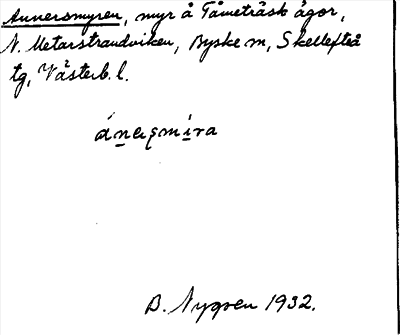 Annersmyren, myr å Tåmeträsk ägor,
N. Metarstrandviken, Byske sn, Skellefteå
tg, Västerb. l.
ánərşmìra
B. Nygren 1932.